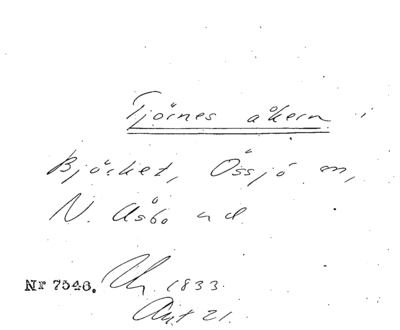 Tjörnes åkern i
Björket, Össjö sn,
N. Åsbo hd
Nr 7546. 1833.
Akt 21.